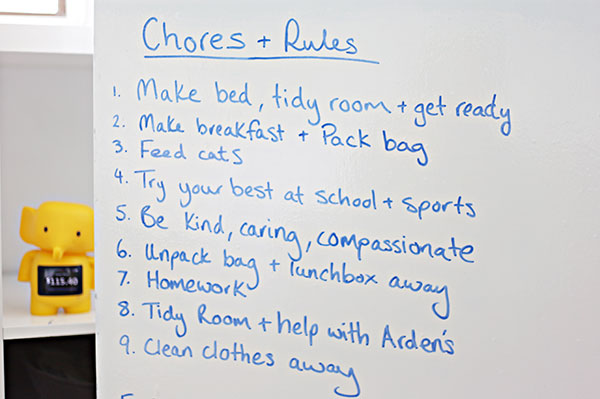 Chores + Rules
1. Make bed, tidy room + get ready
2. Make breakfast + Pack bag
3. Feed cats
4. Try your best at school + sports
5. Be kind, caring, compassionate
6. Unpack bag + lunchbox away
7. Homework
8. Tidy Room + help with Arden's
9. Clean clothes away
$115.40